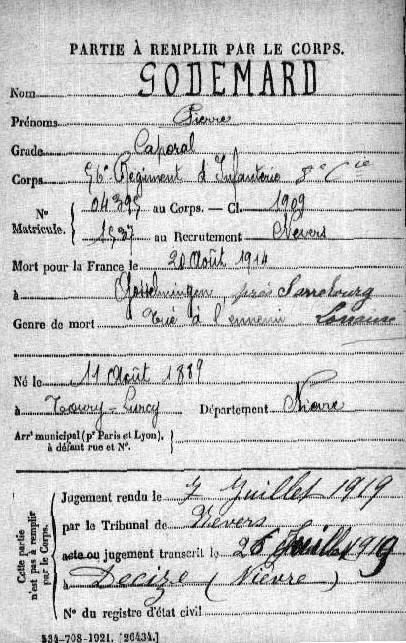 PARTIE À REMPLIR PAR LE CORPS.
Nom GODEMARD
Prénoms Pierre
Grade Caporal
Corps 56e Régiment d'Infanterie 8e Cie
No Matricule. { 04395 au Corps. — Cl. 1909
1537 au Recrutement Nevers
Mort pour la France le 20 Août 1914
à Gosselmingen près Sarrebourg
Genre de mort Tué à l'ennemi Lorraine
Né le 11 Août 1889
à Toury-Lurcy Département Nièvre
Arrt municipal (pr Paris et Lyon), à défaut rue et No.
Cette partie n'est pas à remplir par le Corps.
Jugement rendu le 7 Juillet 1919
par le Tribunal de Nevers
acte ou jugement transcrit le 26 Juillet 1919
à Decize (Nièvre)
No du registre d'état civil
534-708-1921. [26434.]